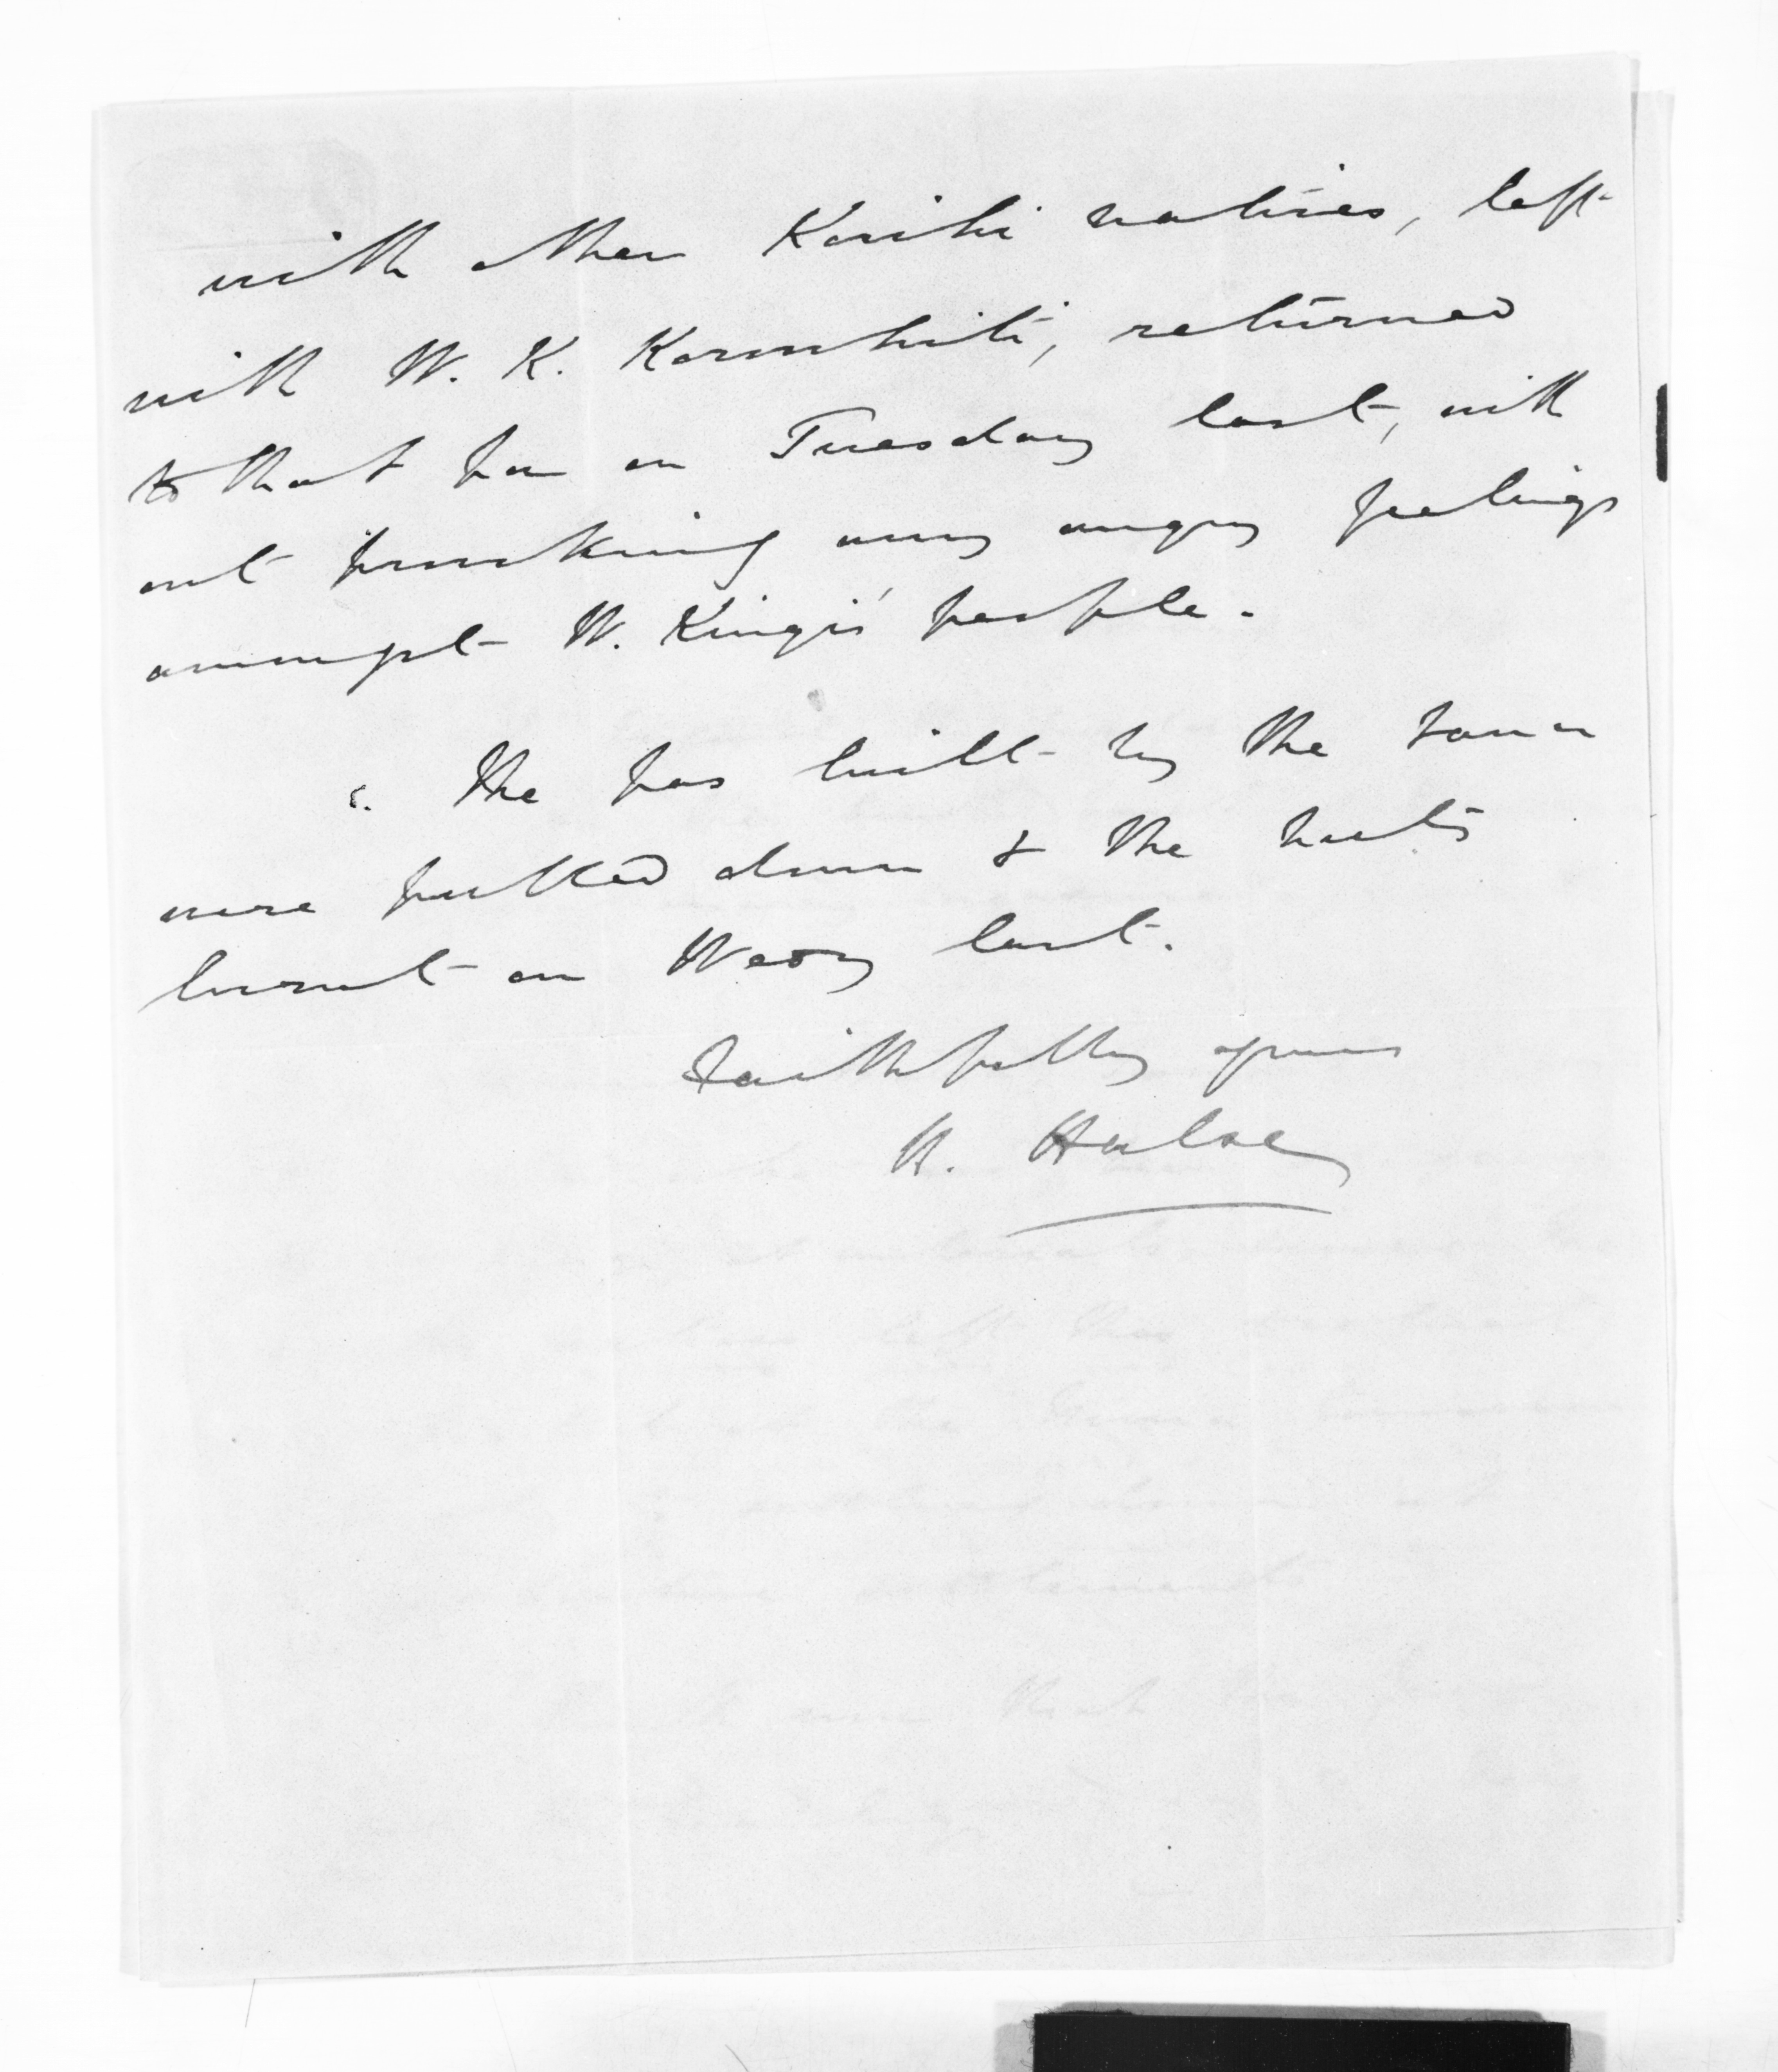 with other Karibi natives, left
with W. K. Korowhiti, returned
to that pa on Tuesday last, with
out provoking any angry feelings
amongst W. Kingi's people.
5. The pas built by the taua
were pulled down & the huts
burnt on Wedy last.
Faithfully yours
H. Halse